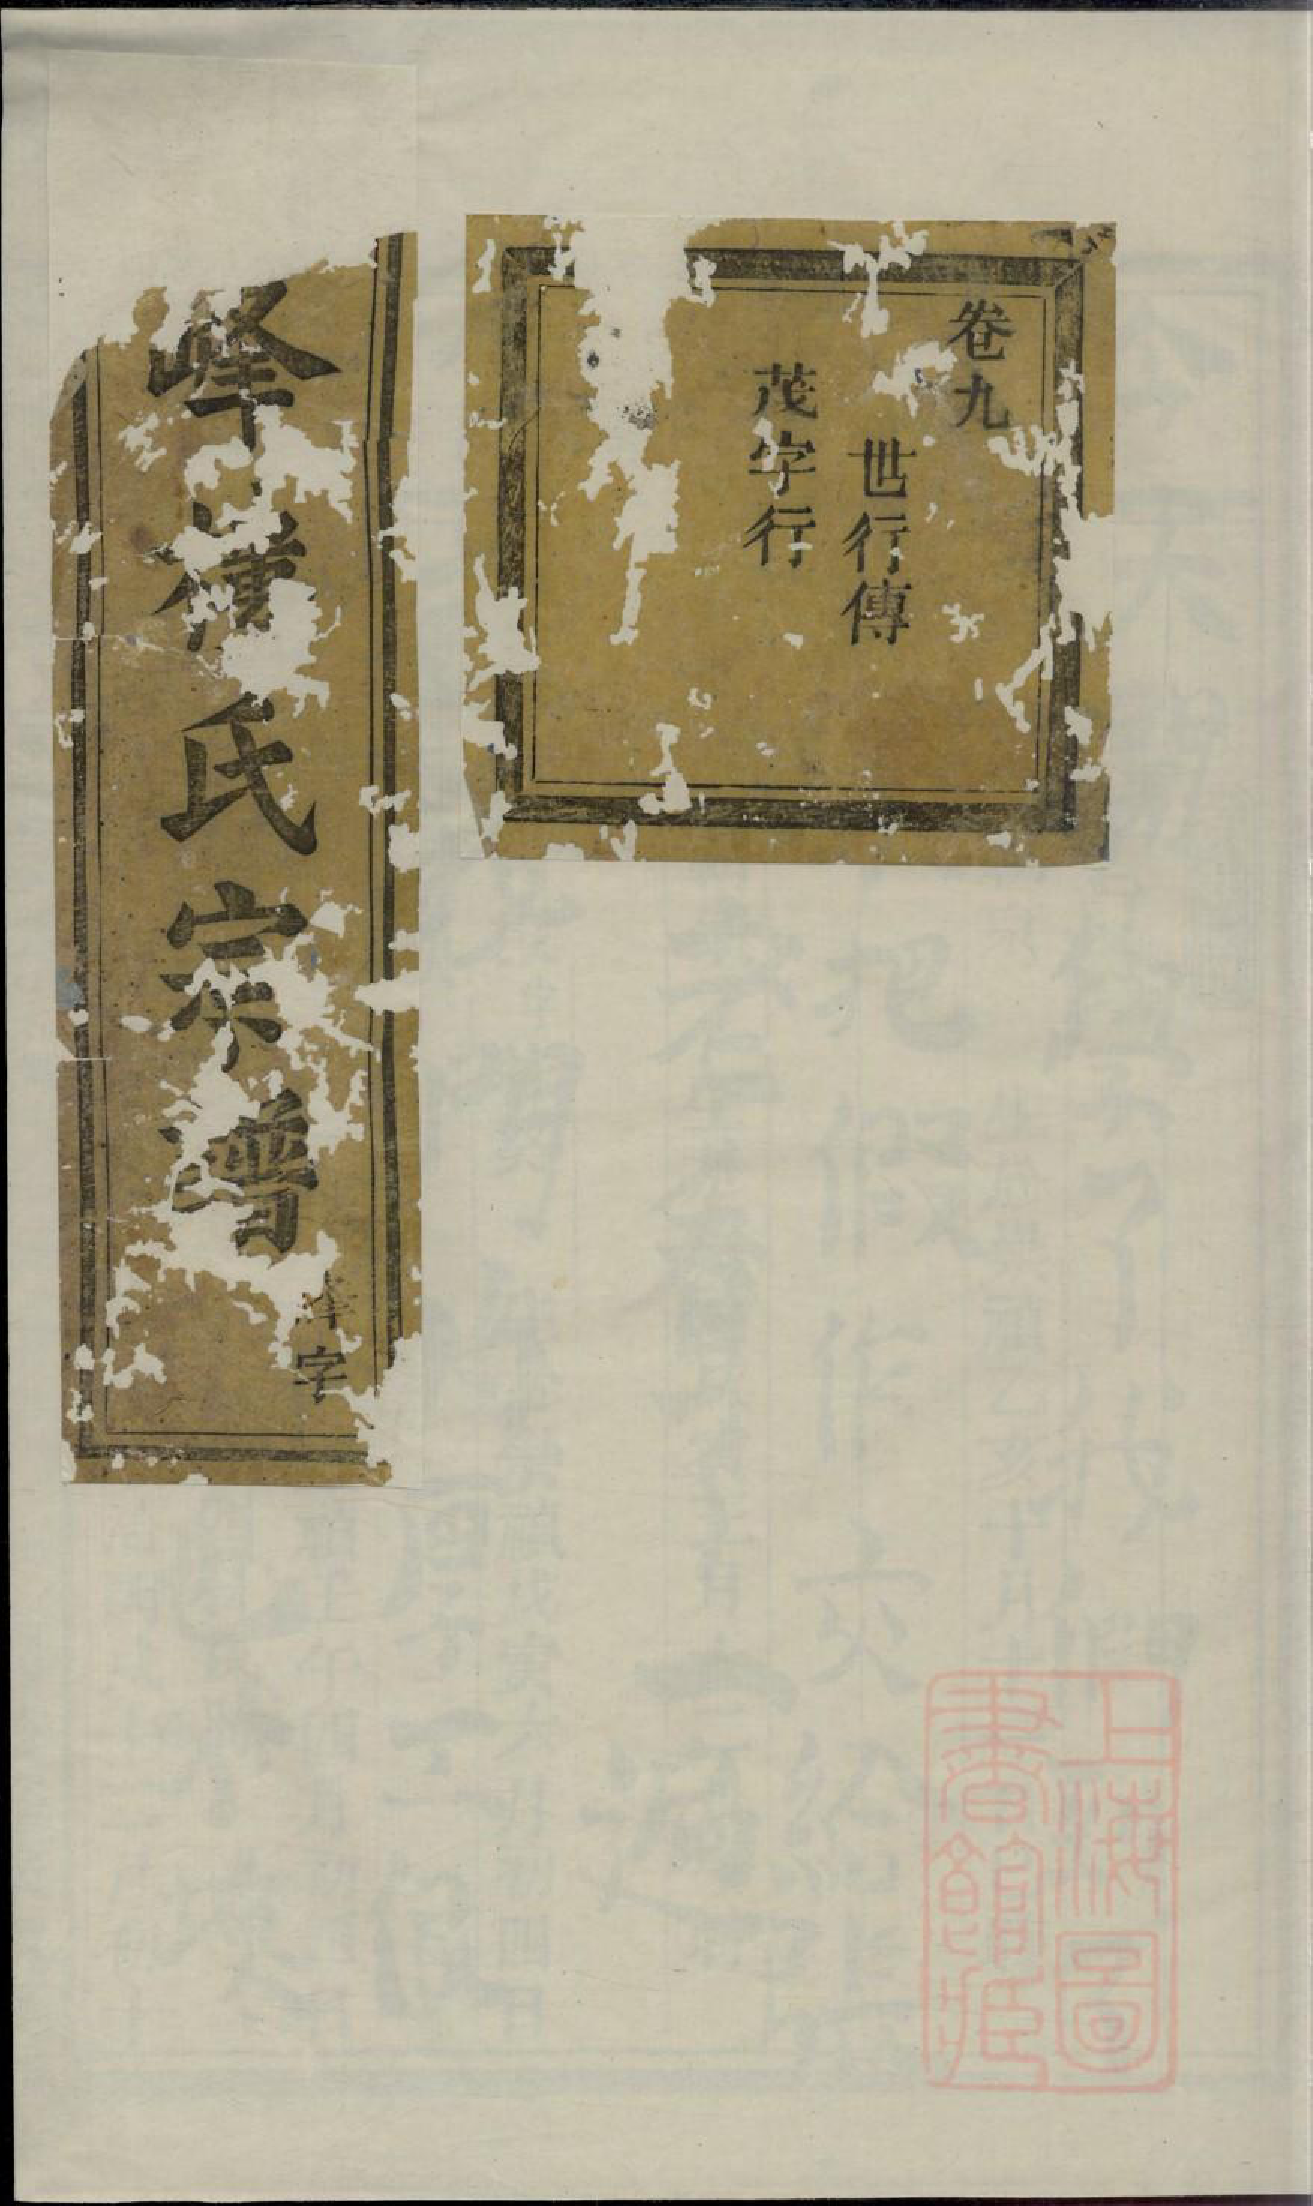 卷九
世行傳
茂字行
峰氏宗譜
字
上海圖
書館藏